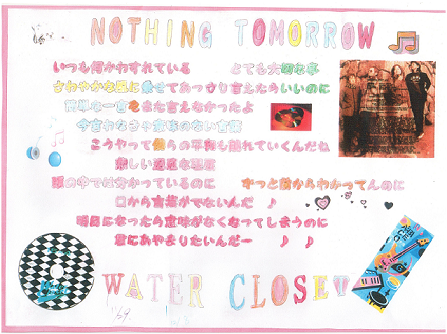 NOTHING TOMORROW
いつも何かわすれている とても大切な事
さわやかな風に乗せてあっさり言えたらいいのに
簡単な一言をまた言えなかったよ
今言わなきゃ意味のない言葉
こうやって僕らの平和も崩れていくんだね
悲しい
頭の中では分かっているのに ずっと前からわかってんのに
口から言葉がでないんだ ♪
明日になったら意味がなくなってしまうのに
君にあやまりたいんだー ♪ ♪
WATER CLOSET